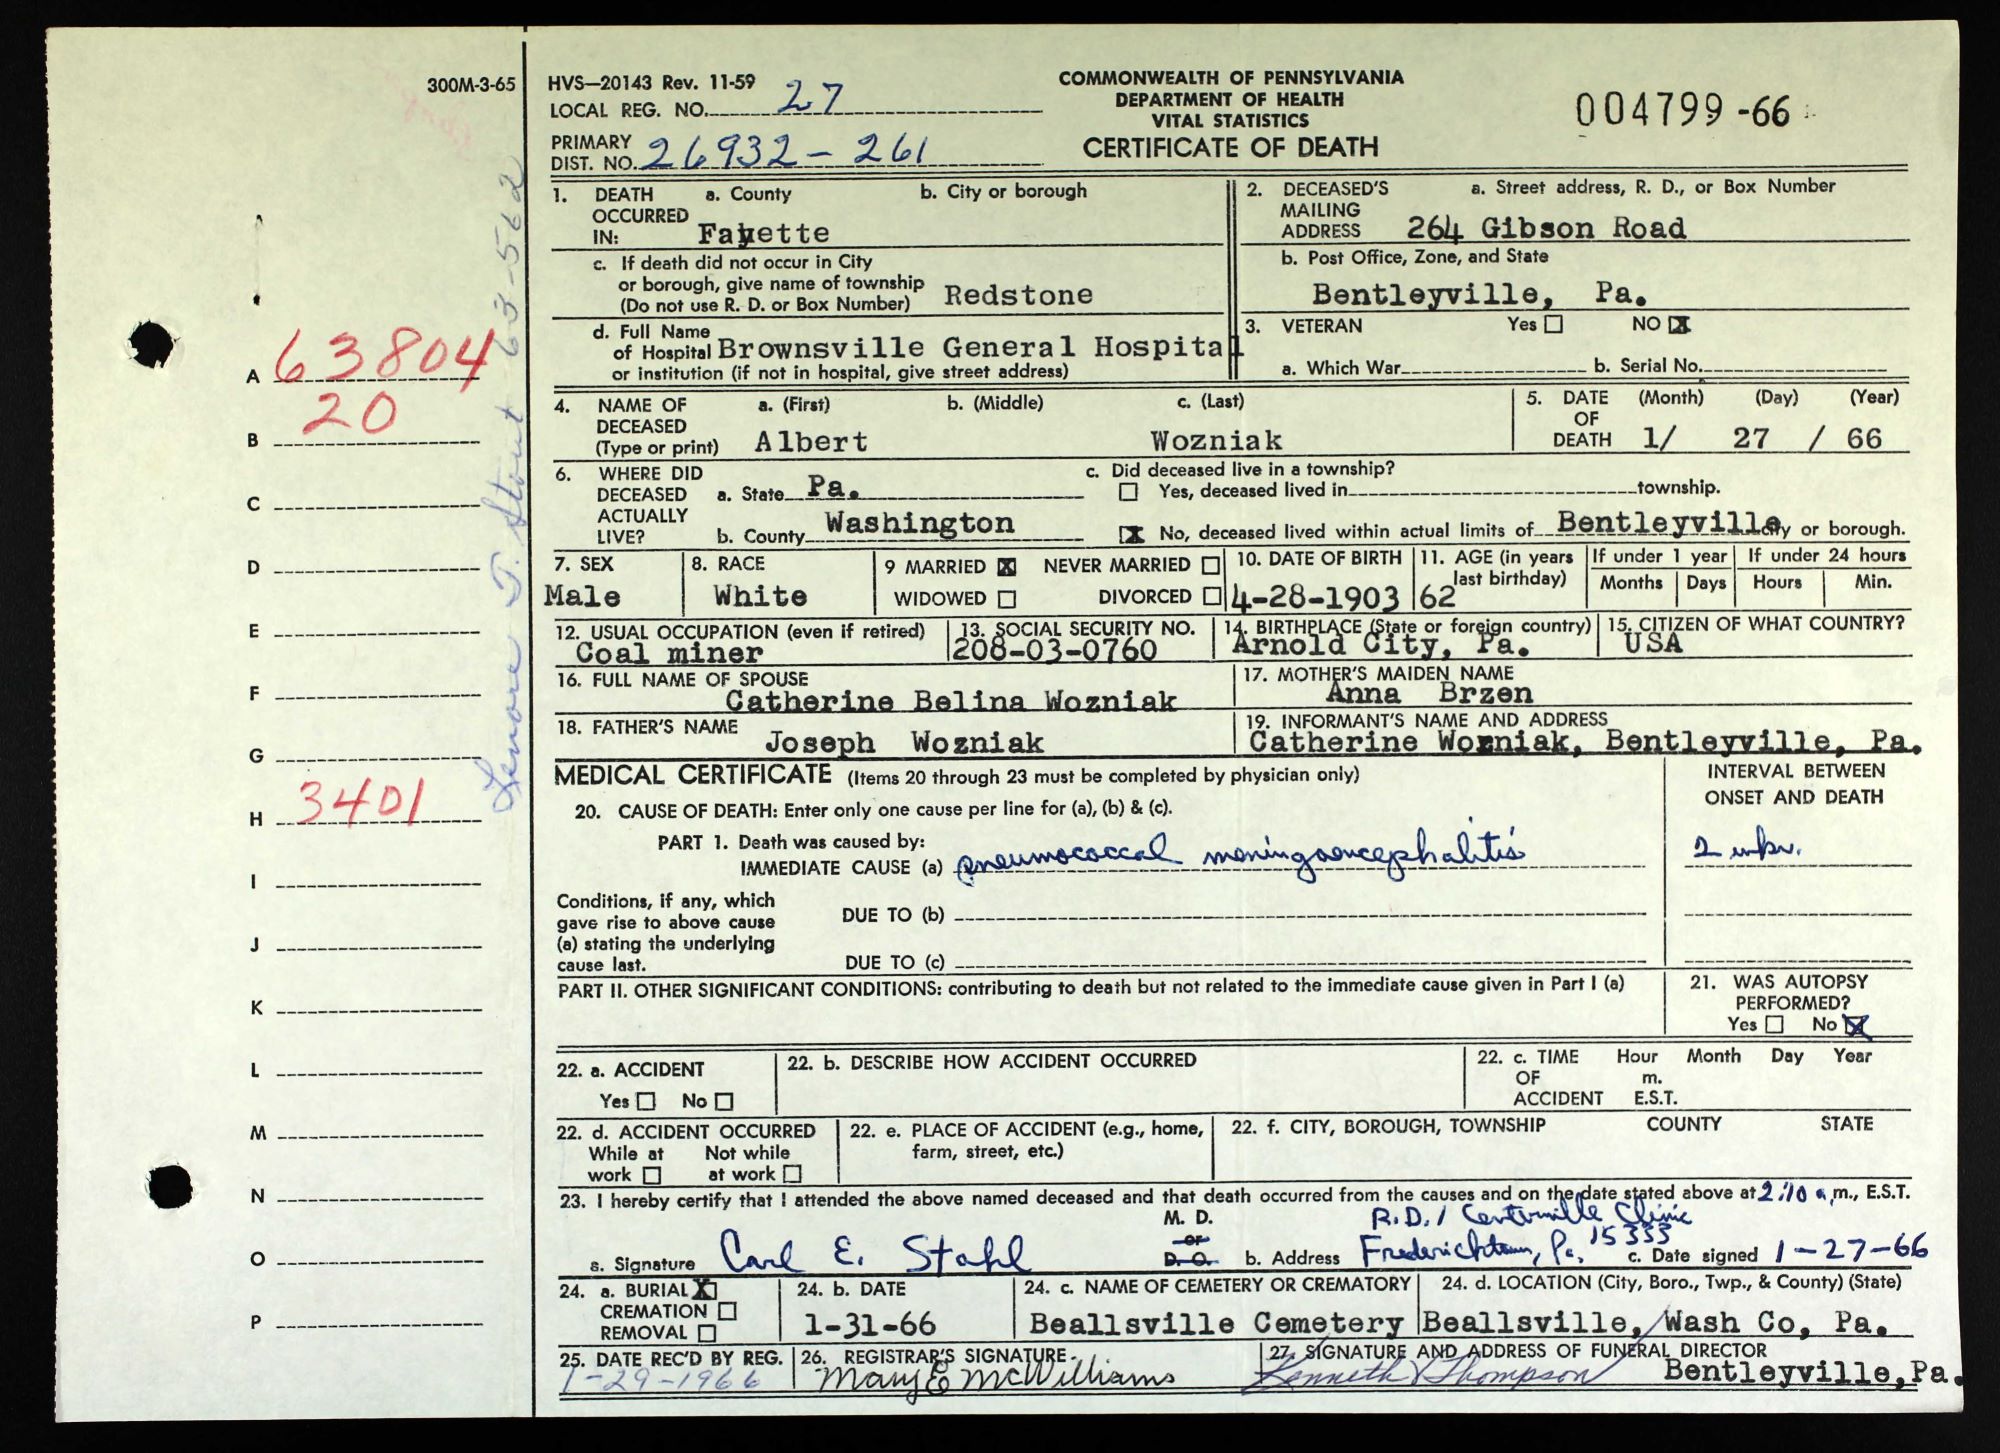 300M-3-65
HVS—20143 Rev. 11-59
LOCAL REG. NO. 27
PRIMARY DIST. NO. 26932 - 261
COMMONWEALTH OF PENNSYLVANIA
DEPARTMENT OF HEALTH
VITAL STATISTICS
CERTIFICATE OF DEATH
004799 -66
1. DEATH OCCURRED IN: a. County Fayette b. City or borough
c. If death did not occur in City
or borough, give name of township
(Do not use R. D. or Box Number) Redstone
d. Full Name
of Hospital Brownsville General Hospital
or institution (if not in hospital, give street address)
2. DECEASED'S MAILING ADDRESS a. Street address, R. D., or Box Number
264 Gibson Road
b. Post Office, Zone, and State
Bentleyville, Pa.
3. VETERAN Yes NO X
a. Which War b. Serial No.
4. NAME OF DECEASED (Type or print) a. (First) b. (Middle) c. (Last)
Albert Wozniak
5. DATE OF DEATH (Month) (Day) (Year)
1/ 27 / 66
6. WHERE DID DECEASED ACTUALLY LIVE? a. State Pa.
b. County Washington
c. Did deceased live in a township?
Yes, deceased lived in township.
X No, deceased lived within actual limits of Bentleyville city or borough.
7. SEX Male
8. RACE White
9 MARRIED X NEVER MARRIED
WIDOWED DIVORCED
10. DATE OF BIRTH 4-28-1903
11. AGE (in years last birthday) 62
If under 1 year Months Days
If under 24 hours Hours Min.
12. USUAL OCCUPATION (even if retired) Coal miner
13. SOCIAL SECURITY NO. 208-03-0760
14. BIRTHPLACE (State or foreign country) Arnold City, Pa.
15. CITIZEN OF WHAT COUNTRY? USA
16. FULL NAME OF SPOUSE Catherine Belina Wozniak
17. MOTHER'S MAIDEN NAME Anna Brzen
18. FATHER'S NAME Joseph Wozniak
19. INFORMANT'S NAME AND ADDRESS Catherine Wozniak, Bentleyville, Pa.
MEDICAL CERTIFICATE (Items 20 through 23 must be completed by physician only)
INTERVAL BETWEEN ONSET AND DEATH
20. CAUSE OF DEATH: Enter only one cause per line for (a), (b) & (c).
PART 1. Death was caused by:
IMMEDIATE CAUSE (a) pneumococcal meningoencephalitis 2 wks.
Conditions, if any, which
gave rise to above cause
(a) stating the underlying
cause last.
DUE TO (b)
DUE TO (c)
PART II. OTHER SIGNIFICANT CONDITIONS: contributing to death but not related to the immediate cause given in Part I (a)
21. WAS AUTOPSY PERFORMED?
Yes No X
22. a. ACCIDENT
Yes No
22. b. DESCRIBE HOW ACCIDENT OCCURRED
22. c. TIME OF ACCIDENT Hour Month Day Year
m.
E.S.T.
22. d. ACCIDENT OCCURRED
While at work Not while at work
22. e. PLACE OF ACCIDENT (e.g., home, farm, street, etc.)
22. f. CITY, BOROUGH, TOWNSHIP COUNTY STATE
23. I hereby certify that I attended the above named deceased and that death occurred from the causes and on the date stated above at 2:10 a.m., E.S.T.
a. Signature Carl E. Stahl
M. D. or D. O.
b. Address R.D.1 Centerville Clinic
Fredericktown, Pa. 15333
c. Date signed 1-27-66
24. a. BURIAL X
CREMATION
REMOVAL
24. b. DATE 1-31-66
24. c. NAME OF CEMETERY OR CREMATORY Beallsville Cemetery
24. d. LOCATION (City, Boro., Twp., & County) (State) Beallsville, Wash Co, Pa.
25. DATE REC'D BY REG. 1-29-1966
26. REGISTRAR'S SIGNATURE Mary E McWilliams
27. SIGNATURE AND ADDRESS OF FUNERAL DIRECTOR Kenneth V Thompson Bentleyville, Pa.
A 63804
20
B
C
D
E
F
G
H 3401
I
J
K
L
M
N
O
P
Lenore T. Stout 63-562